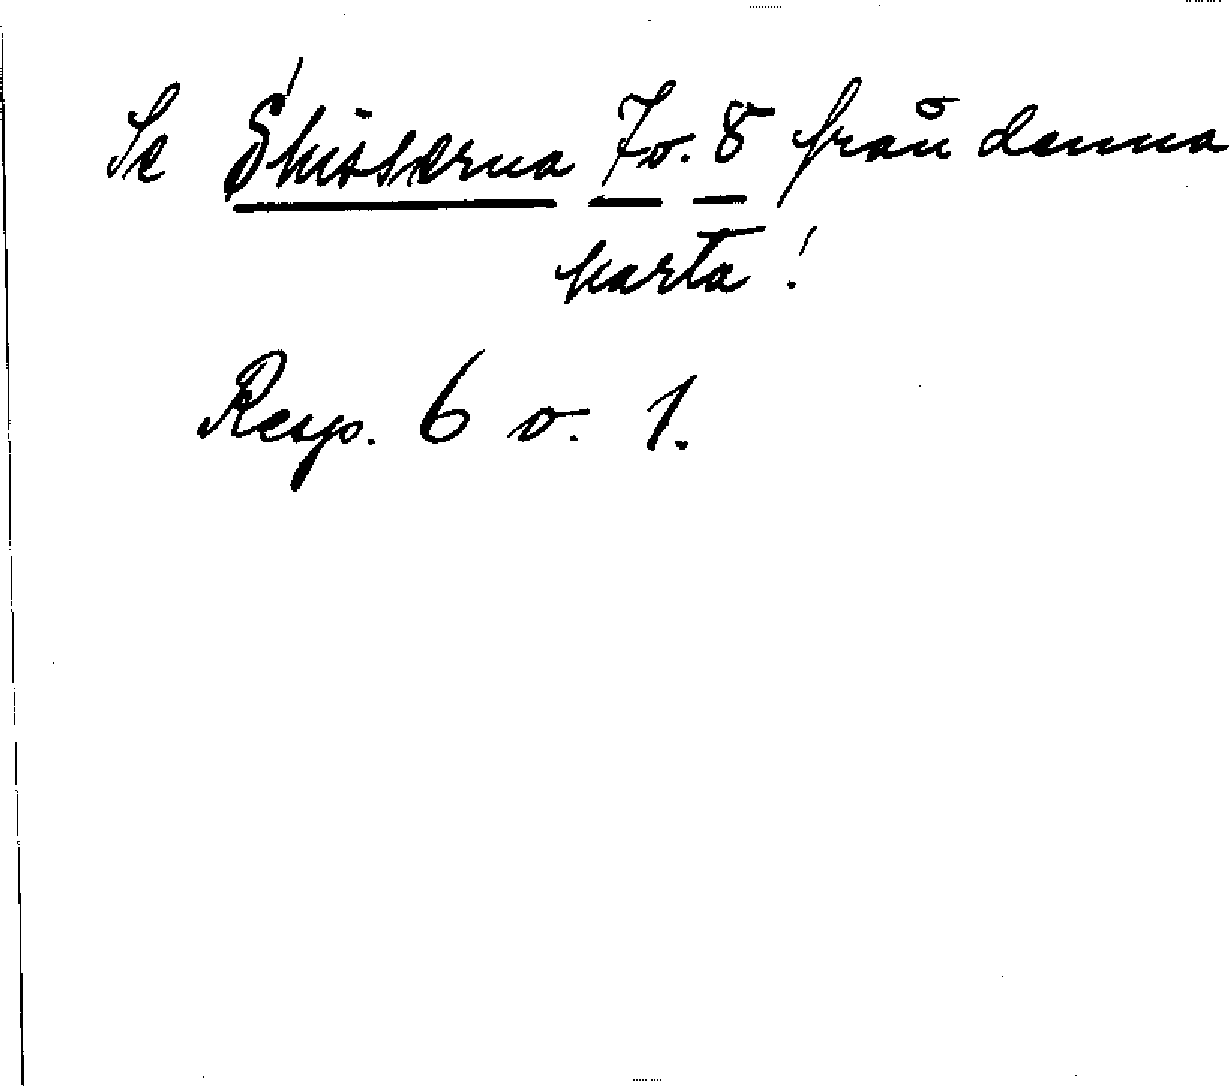 Se Skisserna 7 o. 8 från denna
karta!
Resp. 6 o. 1.